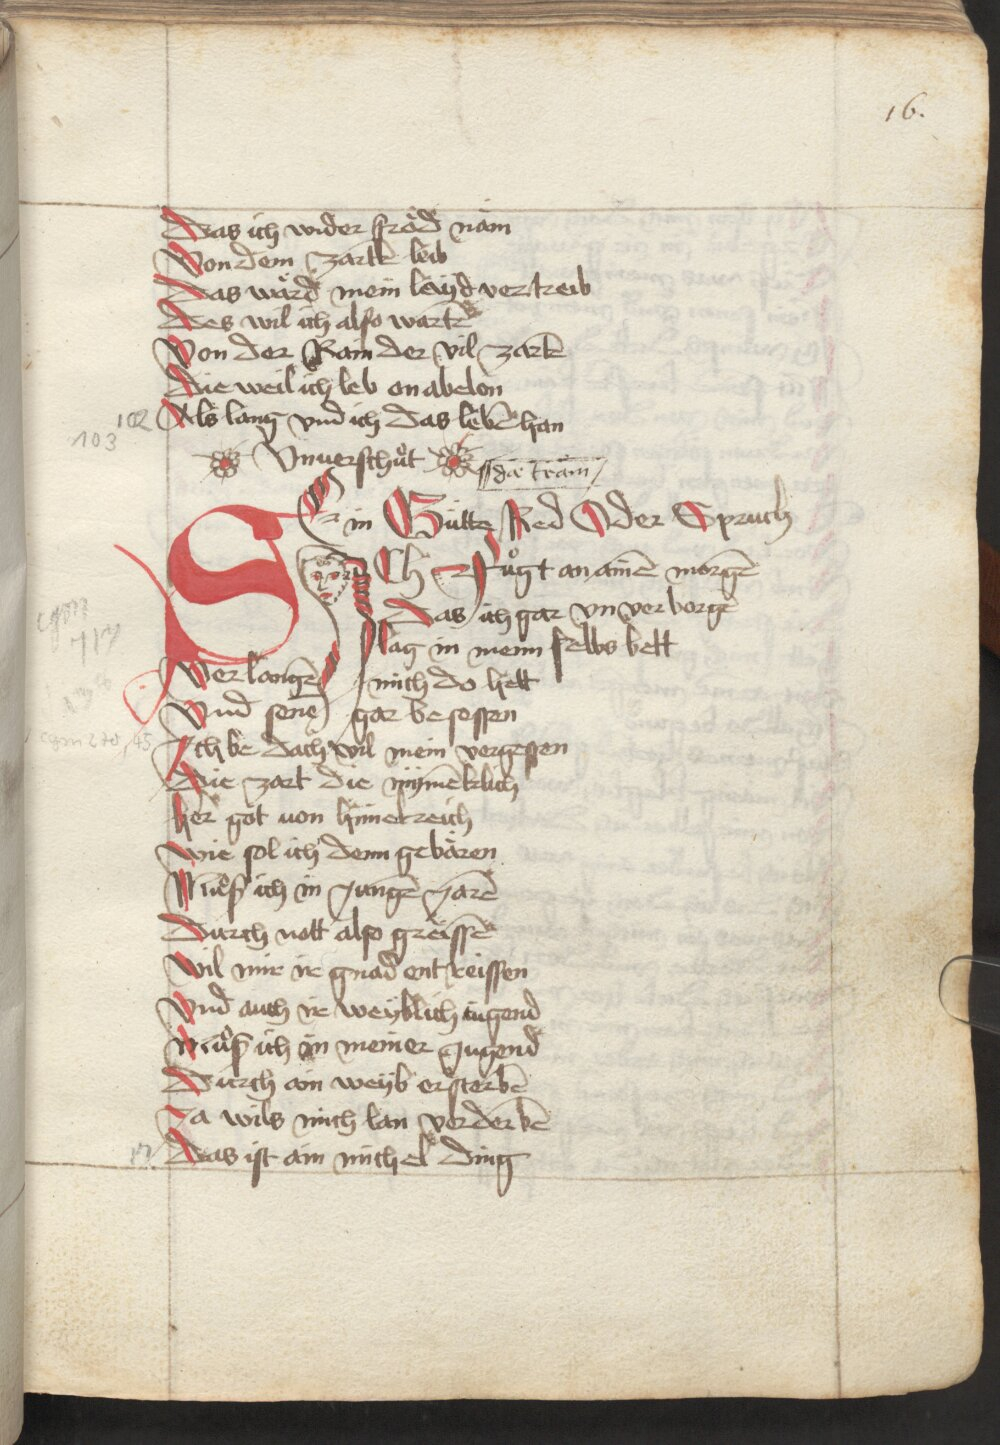 16.
Das ich wider fräd näm
Von dem zartē leib
Das wärd mein leӱd vertreib
Des wil ich also wartē
Von der Rain der vil zartē
Die weil ich leb on abelon
102 Als lang vnd ich das lebē han
103
Vnuerschůt
die träm
Er in Gütte Red Oder Spruch
Ich Fůgt an ainē morgē
Das ich gar vn verborgē
lag in meim selbs bett
Verlangē mich do hett
Vnd senē gar besessen
Ich be dach wil mein vergessen
Die zart die mӱmeklich
her got von himelreich
Wie sol ich denn gebären
Můß ich in Jungē Jarē
Durch nott also greissē
Wil mir ir gnad entreissen
Vnd auch ir weӱblich tugend
Můß ich in meiner Jugend
Durch ain weӱb ersterbē
Ja wils mich lan verderbē
Das ist ain michel ding
cgm
717
cgm 270, 45